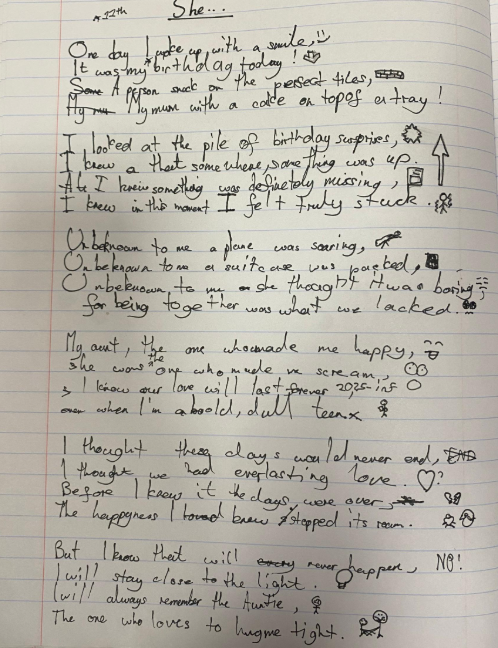 *11th
She...
One day I woke up with a smile,
It was my birthday today!
Some A person snuck on the perfect tiles,
My mum with a cake on top of a tray!
I looked at the pile of birthday surprises,
I knew a that somewhere, something was up.
I knew something was definetely missing,
I knew in this moment I felt Truly stuck.
Unbeknown to me a plane was soaring,
Unbeknown to me a suitcase was packed,
Unbeknown, to me she thought it was boring
for being together was what we lacked.
My aunt, the one who made me happy,
she was the one who made me scream,
I know our love will last forever 2025-inf
when I'm a bold, dull teen
I thought these days would never end, END
I thought we had everlasting love. ?
Before I knew it the days were over,
The happyness I loved knew stopped its roam.
But I know that will every never happen, NO!
I will stay close to the light.
I will always remember the Auntie,
The one who loves to hug me tight.